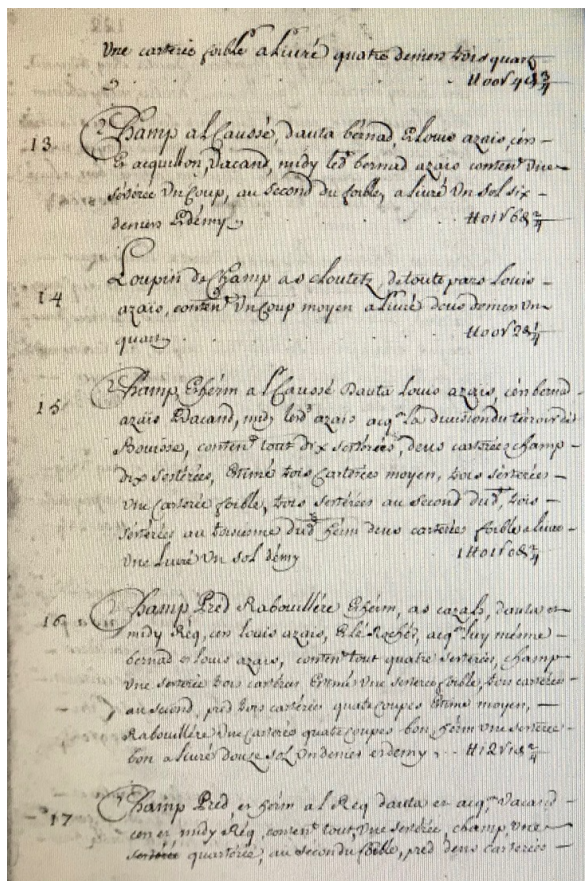 Une carterée foible a livré quatre deniers trois quart
# 00 s 4 d 3/4
13 Champ al Causse, dauta bernad, & Louis azais, cers
& acquillon, vacand, midy led. bernad azais conten.t une
sesterée un Coup, au second du foible, a livré un sol six
deniers & démy
# 01 s 6 d 2/4
14 Loupin de Champ as cloutetz, de toute pars Louis
azais, conten.t un Coup moyen a livré deus deniers un
quart
# 00 s 2 d 1/4
15 Champ & herm al Causse dauta Louis azais, cers bernad
azais & vacand, midy led. azais acq.on la division du terroir de
Bouisse, conten.t tout dix sesterées, deus carterées champ
dix sesterées, Estimé trois Carterées moyen, trois sesterées
une carterée foible, trois sesterées au second dud., trois
sesterées au troisieme dud. herm deus carterées foible a livré
une Livre un sol démy
1 # 01 s 0 d 2/4
16 Champ Pred Rabouillére & herm, as cazals, dauta et
midy Réq, cers Louis azais, & le Rocher, acq.on luy méme
bernad et Louis azais, conten.t tout quatre sesterées, champ
une sesterée trois carterées Estimé une sesterée foible, trois carterées
au second, pred trois carterées quate coupes Estimé moyen,
Rabouillére une carterée quate coupes bon herm une sesterée
bon a livré douze sol un denier et demy
# 12 s 1 d 2/4
17 Champ Pred et herm al Réq dauta et acq.on Vacand
cers et midy Réq, conten.t tout une sesterée, champ, une
quarterée, au second du foible, pred deus carterées